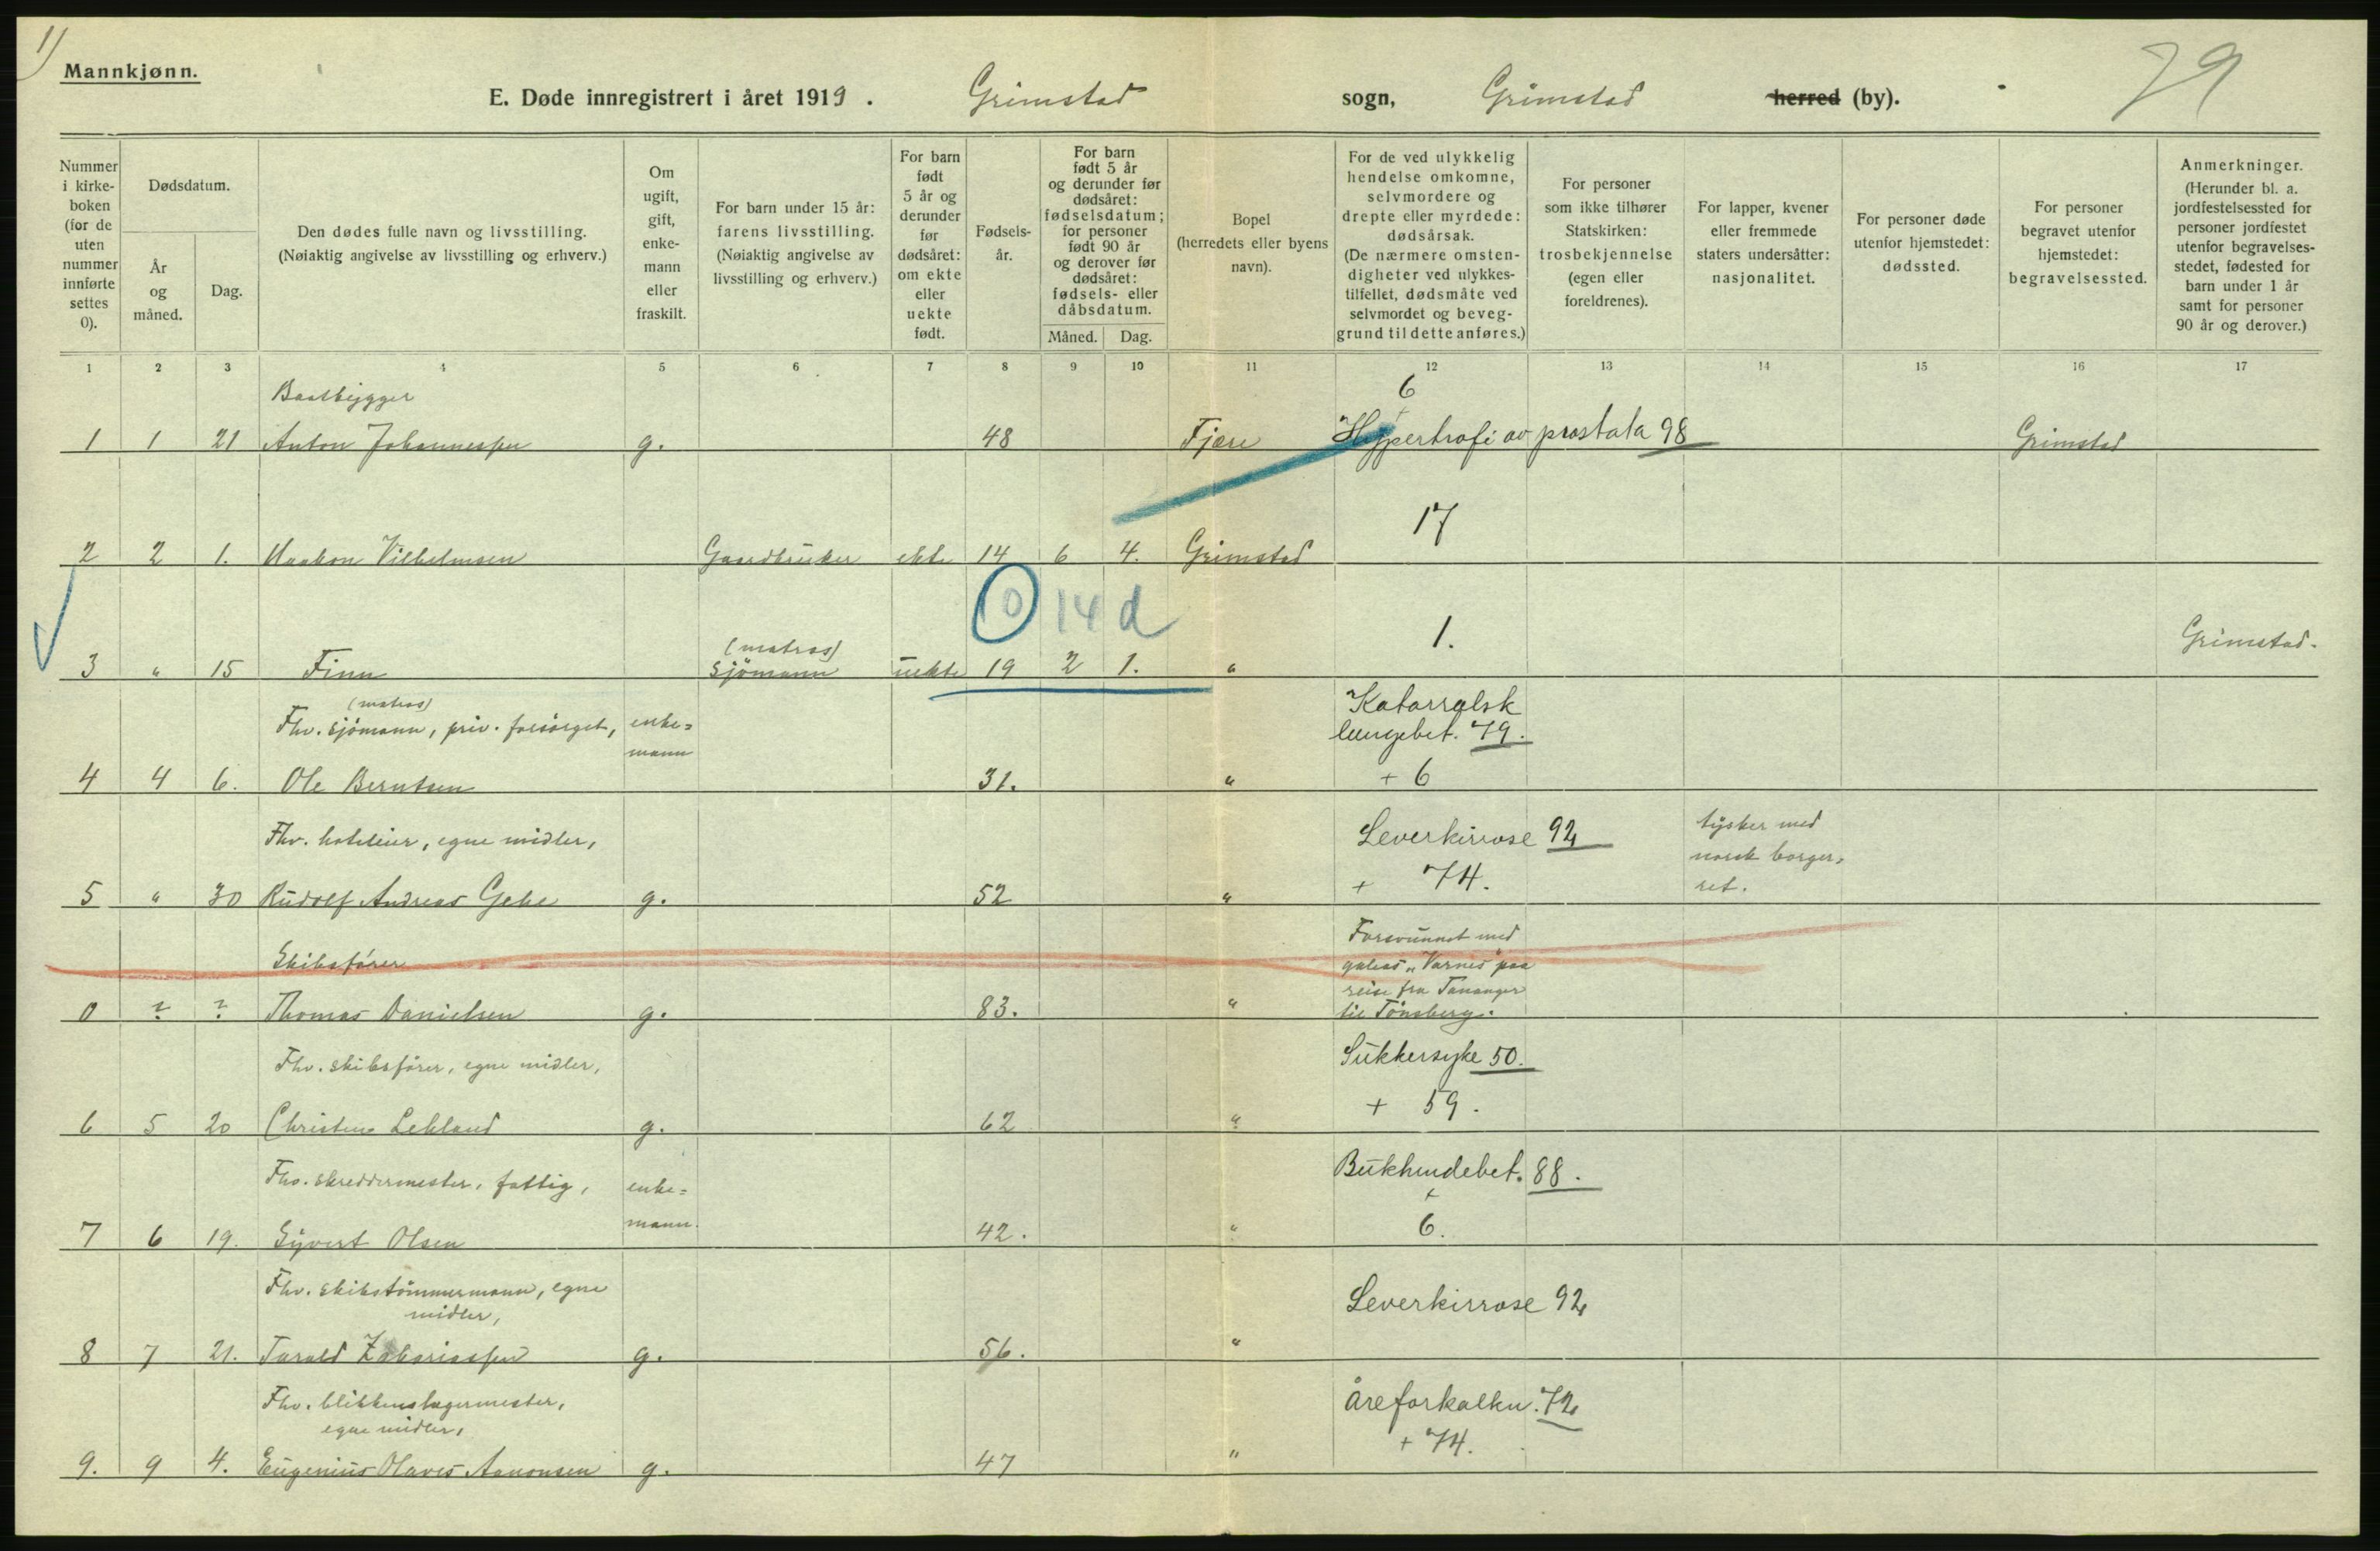 1)
Mannkjønn.
E. Døde innregistrert i året 1919. Grimstad sogn, Grimstad herred (by).
79
Nummer i kirke- boken (for de uten nummer innførte settes 0).
Dødsdatum.
År og måned.
Dag.
Den dødes fulle navn og livsstilling. (Nøiaktig angivelse av livsstilling og erhverv.)
Om ugift, gift, enke- mann eller fraskilt.
For barn under 15 år: farens livsstilling. (Nøiaktig angivelse av livsstilling og erhverv.)
For barn født 5 år og derunder før dødsåret: om ekte eller uekte født.
Fødsels- år.
For barn født 5 år og derunder før dødsåret: fødselsdatum; for personer født 90 år og derover før dødsåret: fødsels- eller dåbsdatum.
Måned. Dag.
Bopel (herredets eller byens navn).
For de ved ulykkelig hendelse omkomne, selvmordere og drepte eller myrdede: dødsårsak. (De nærmere omsten- digheter ved ulykkes- tilfellet, dødsmåte ved selvmordet og beveg- grund til dette anføres.)
For personer som ikke tilhører Statskirken: trosbekjennelse (egen eller foreldrenes).
For lapper, kvener eller fremmede staters undersåtter: nasjonalitet.
For personer døde utenfor hjemstedet: dødssted.
For personer begravet utenfor hjemstedet: begravelsessted.
Anmerkninger. (Herunder bl. a. jordfestelsessted for personer jordfestet utenfor begravelses- stedet, fødested for barn under 1 år samt for personer 90 år og derover.)
1 2 3 4 5 6 7 8 9 10 11 12 13 14 15 16 17
Baatbygger
6
+
1 1 21 Anton Johannessen g. 48 Fjære Hypertrofi av prostata 98 Grimstad
17
2 2 1. Haakon Vilhelmsen Gaardbruker ekte 14 6 4. Grimstad
0 14 d
(matros)
1.
Grimstad.
3 " 15 Finn sjömann uekte 19 2 1. "
(matros)
Fhv. sjömann, priv. forsörget, enke=
mann
Katarralsk
lungebet. 79.
4 4 6. Ole Berntsen 31. " + 6
Fhv. hoteleier, egne midler,
Leverkirrose 92
tysker med
norsk borger=
ret.
5 " 30 Rudolf Andreas Gehe g. 52 " + 74.
Skibsfører
Forsvunnet med
galeas "Varnes" paa
reise fra Tananger
0 ? ? Thomas Danielsen g. 83. " til Tönsberg.
Fhv. skibsfører, egne midler,
Sukkersyke 50.
+ 59.
6 5 20 Christen Lekland g. 62 "
Fhv. skreddermester, fattig, enke=
mann.
Bukhindebet. 88.
+
7 6 19. Syvert Olsen 42. " 6.
Fhv. skibstömmermann, egne
midler,
Leverkirrose 92
8 7 21. Tarald Zakariassen g. 56. "
Fhv. blikkenslagermester,
egne midler,
Åreforkalkn. 72
+ 74.
9. 9 4. Eugenius Olaves Aanonsen g. 47 "